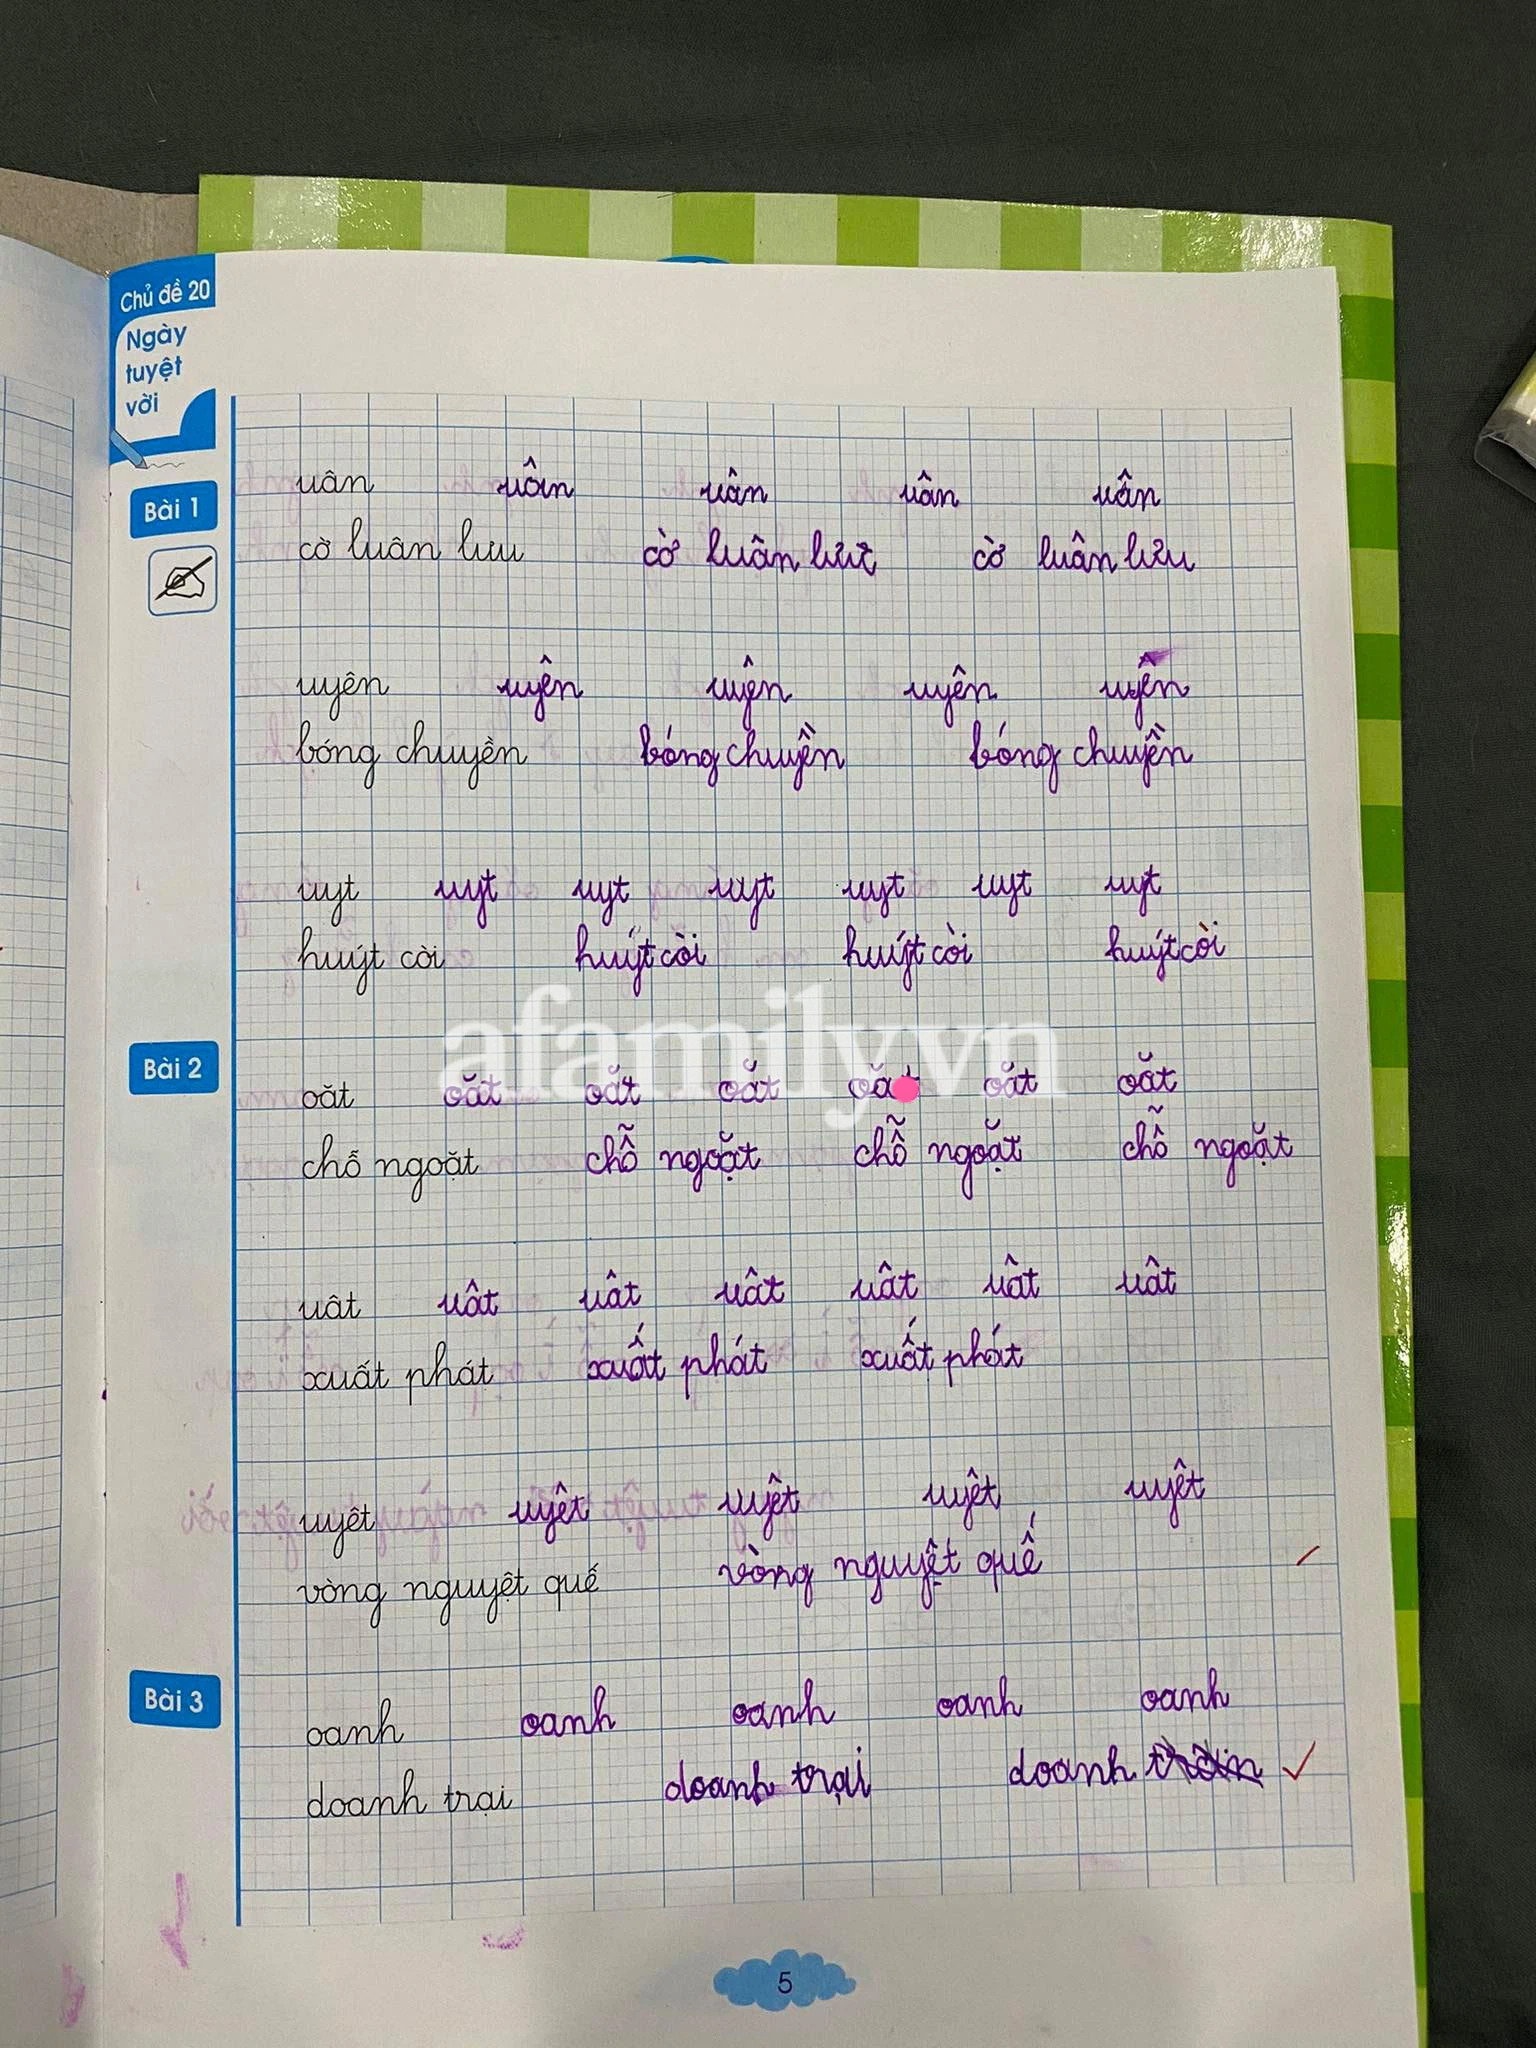 Chủ đề 20
Ngày
tuyệt
vời
Bài 1
uân uôn uân uân uân
cờ luân lưu cờ luân lưu cờ luân lưu
uyên uyên uyên uyên uyên
bóng chuyền bóng chuyền bóng chuyền
uyt uyt uyt uyt uyt uyt uyt
huýt còi huýt còi huýt còi huýt còi
afamily.vn
Bài 2
oăt oăt oăt oăt oăt oăt oăt
chỗ ngoặt chỗ ngoặt chỗ ngoặt chỗ ngoặt
uât uât uât uât uât uât uât
xuất phát xuất phát xuất phát
uyêt uyêt uyêt uyêt uyêt
vòng nguyệt quế vòng nguyệt quế
Bài 3
oanh oanh oanh oanh oanh
doanh trại doanh trại doanh
5